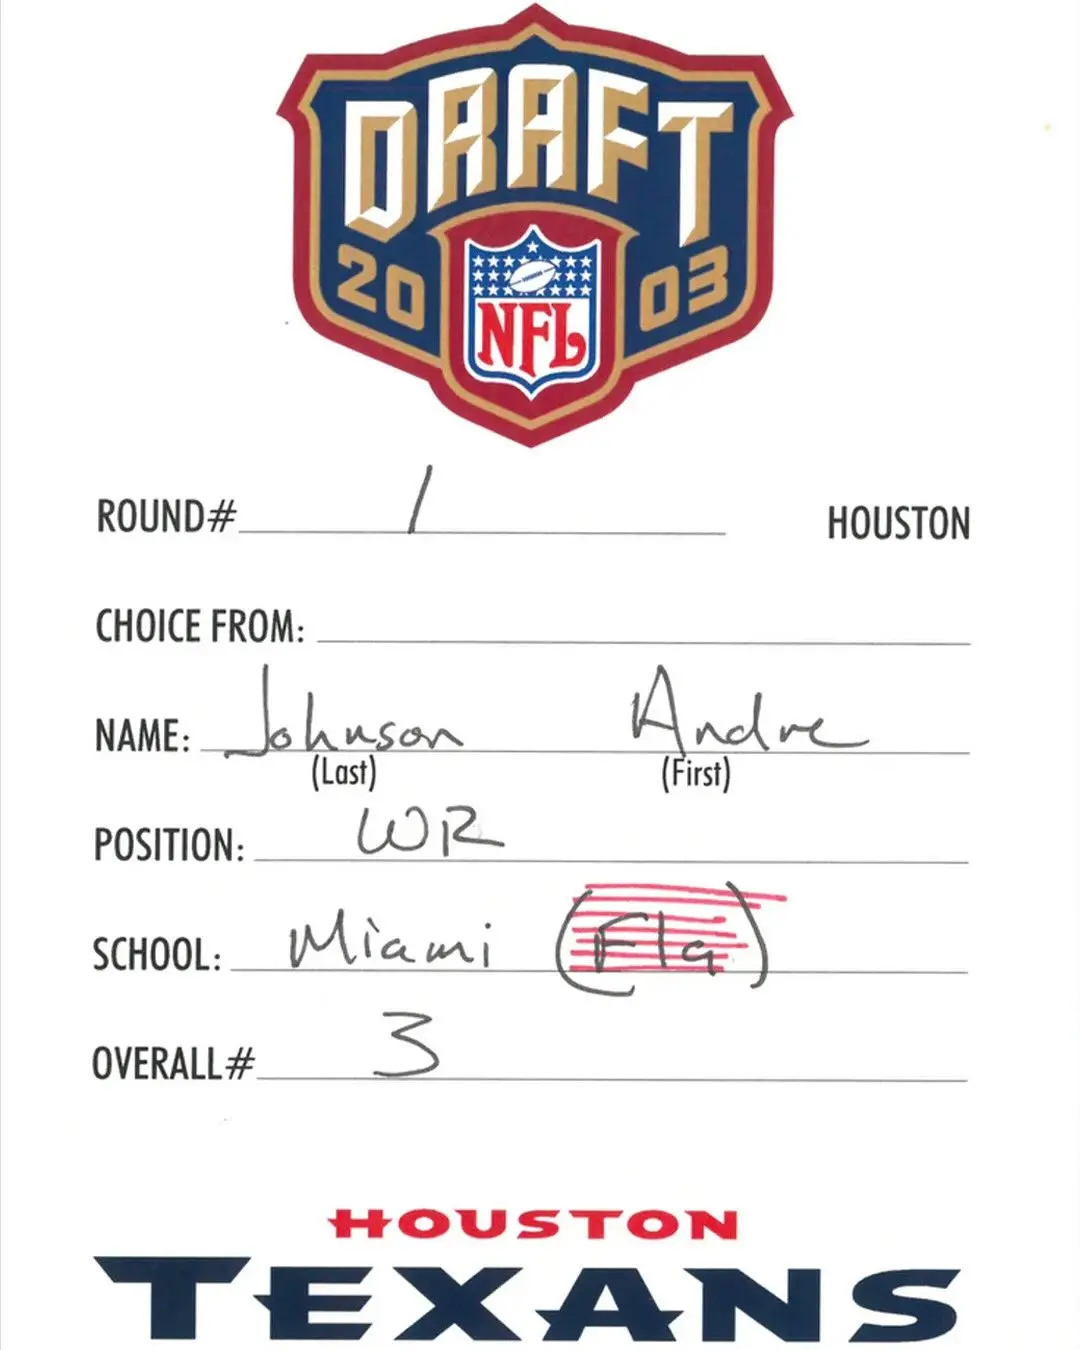 DRAFT
20 03
NFL
ROUND# 1 HOUSTON
CHOICE FROM:
NAME: Johnson Andre
(Last) (First)
POSITION: WR
SCHOOL: Miami (Fla)
OVERALL# 3
HOUSTON
TEXANS